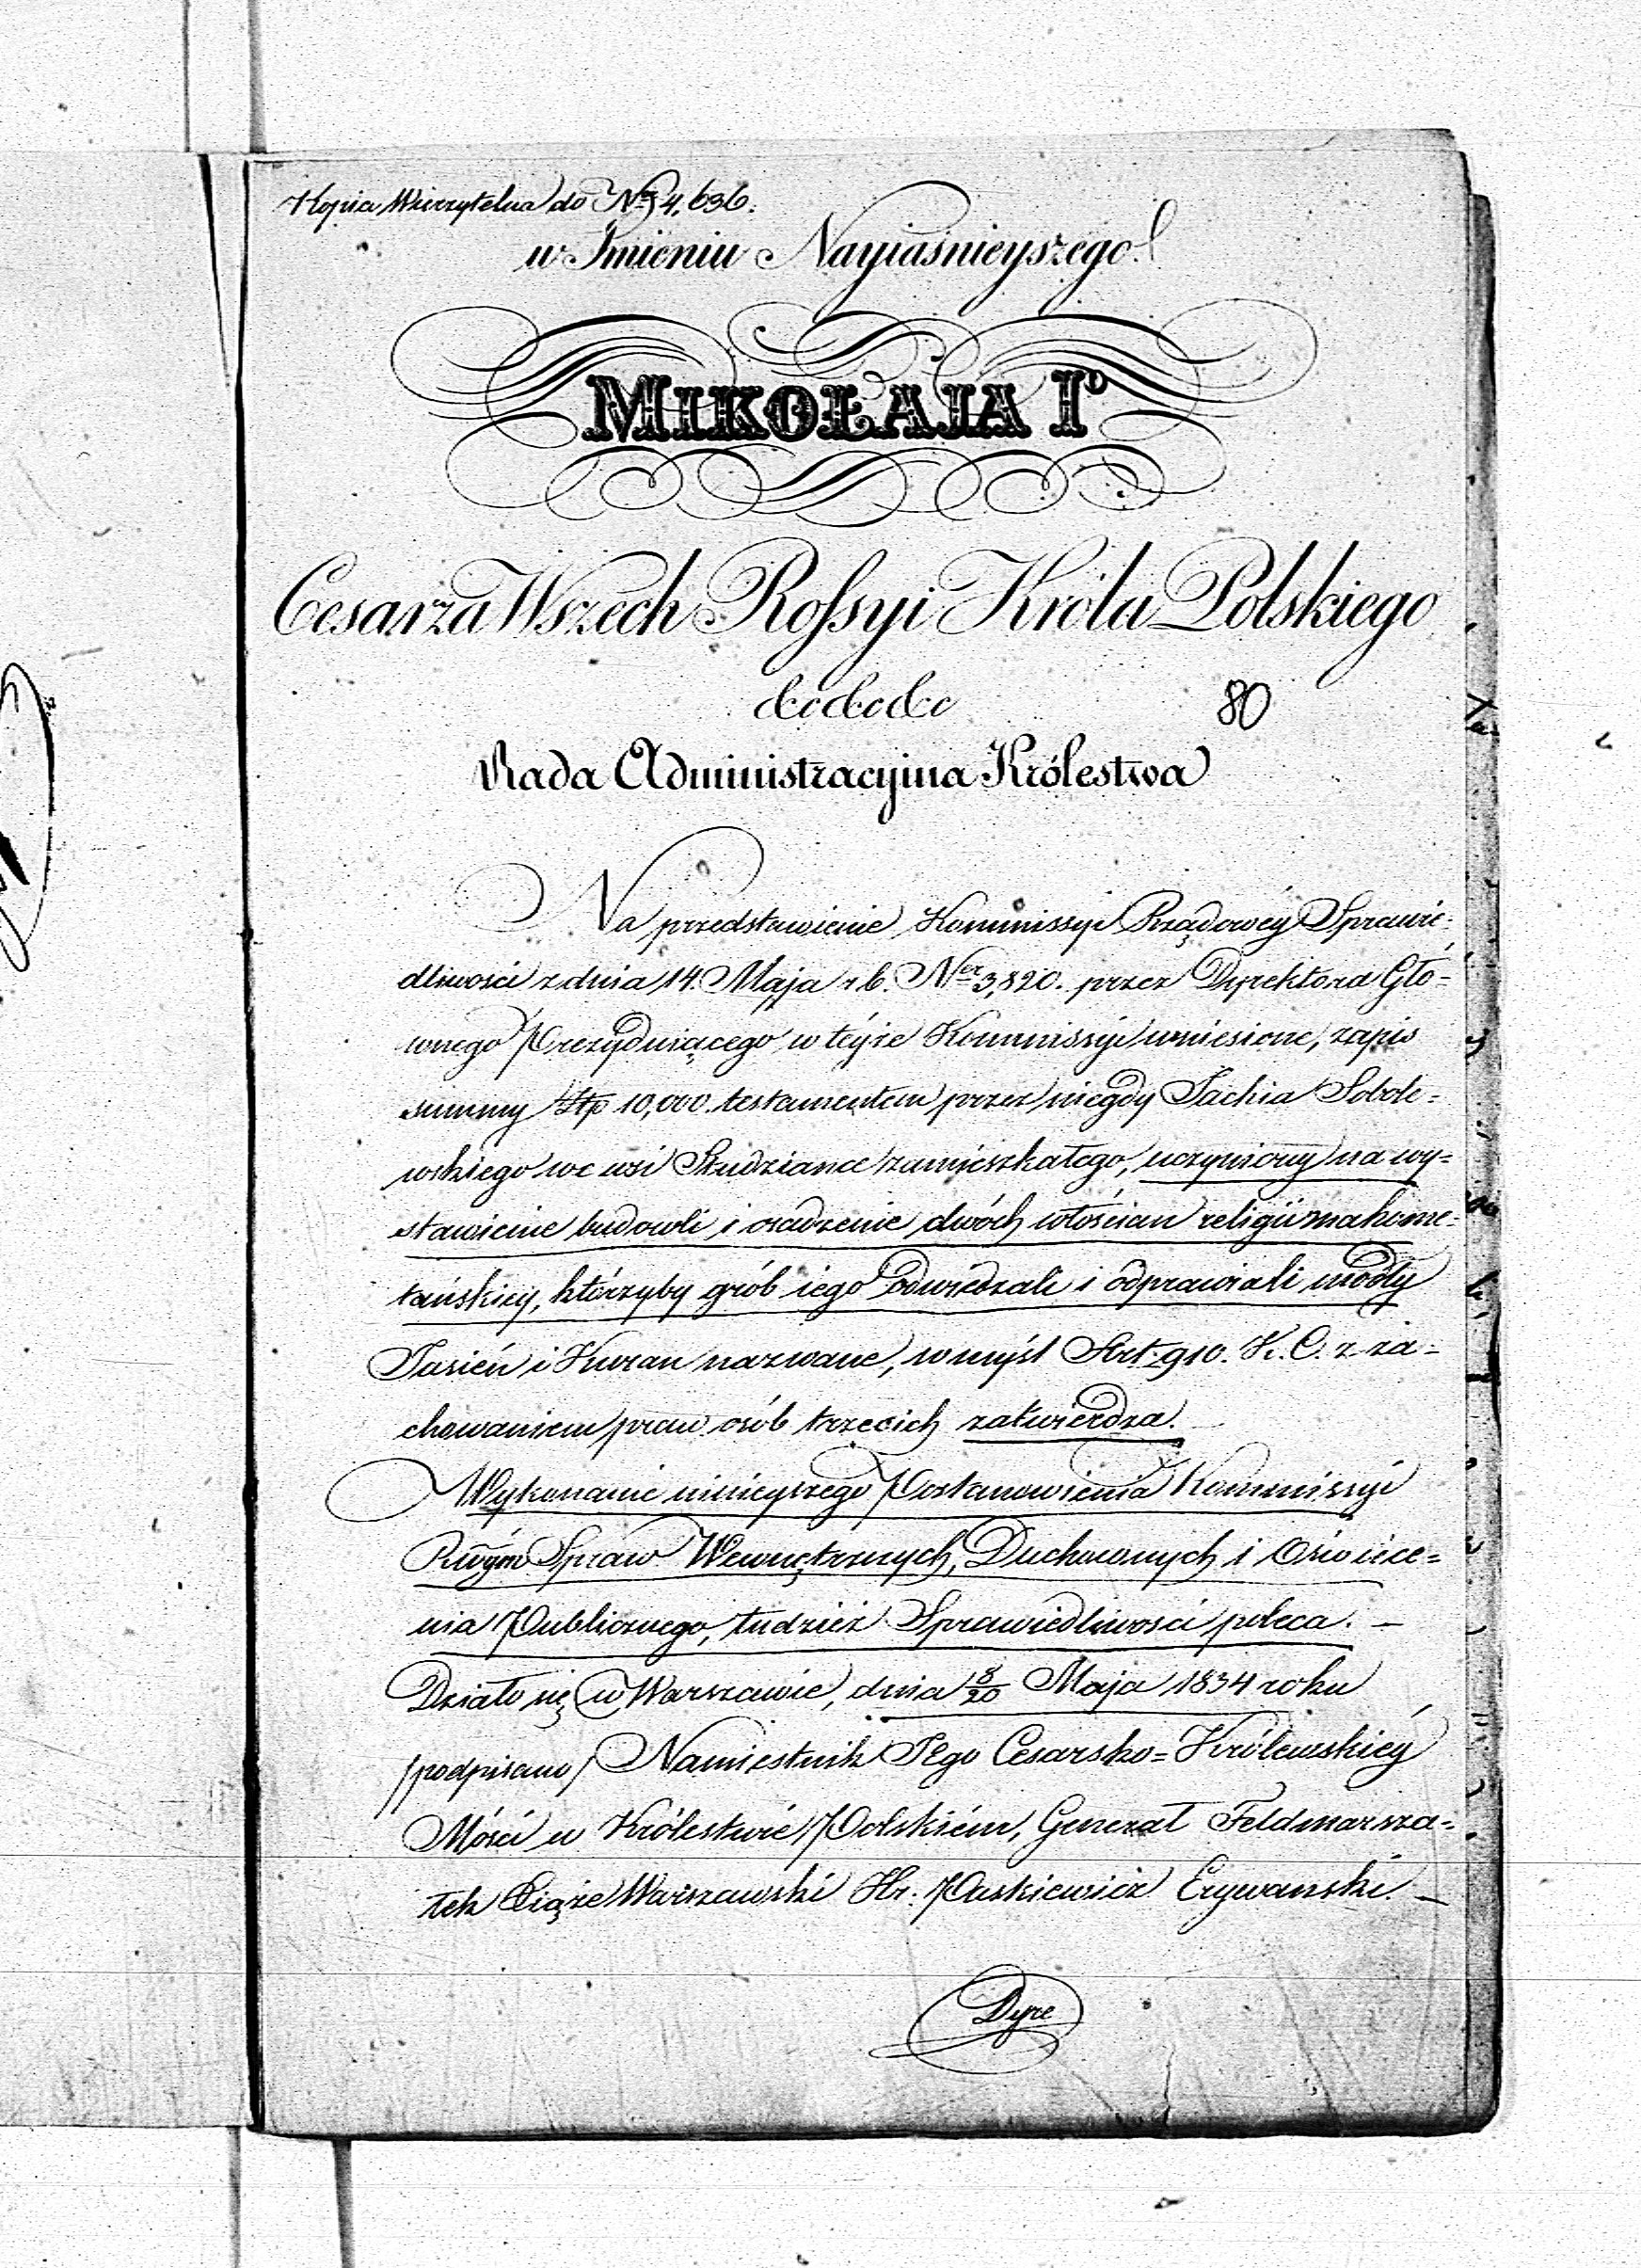 Kopia Wierzytelna do Nr 4,636.
w Imieniu Nayiaśnieyszego
MIKOŁAJA Iº
Cesarza Wszech Rossyi Króla Polskiego
&c &c &c
80
Rada Administracyjna Królestwa
Na przedstawienie Kommissyi Rządowéy Sprawie-
dliwości z dnia 14. Maja r. b. Ner 3,820. przez Dyrektora Głó-
wnego Prezyduiącego w téyże Kommissyi wniesione, zapis
summy Złp 10,000. testamentem przez niegdy Jachia Sobole-
wskiego we wsi Studziance zamieszkałego, uczyniony na wy-
stawienie budowli i osadzenie dwóch włościan religii mahome-
tańskiey, którzyby grób iego odwiedzali i odprawiali modły
Jasień i Kuran nazwane, w myśl Art. 910. K. C. z za-
chowaniem praw osób trzecich zatwierdza.
Wykonanie ninieyszego Postanowienia Kommissyi
Rwym Spraw Wewnętrznych, Duchownych i Oświece-
nia Publicznego, tudzież Sprawiedliwości poleca. –
Działo się w Warszawie, dnia 8/20 Maja 1834 roku
/podpisano/ Namiestnik JEgo Cesarsko-Królewskiéy
Mości w Królestwie Polskiém, Generał Feldmarsza-
łek Xiąże Warszawski Hr. Paskiewicz Erywanski. –
Dyre